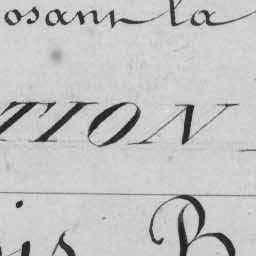 osant la
TION
is B